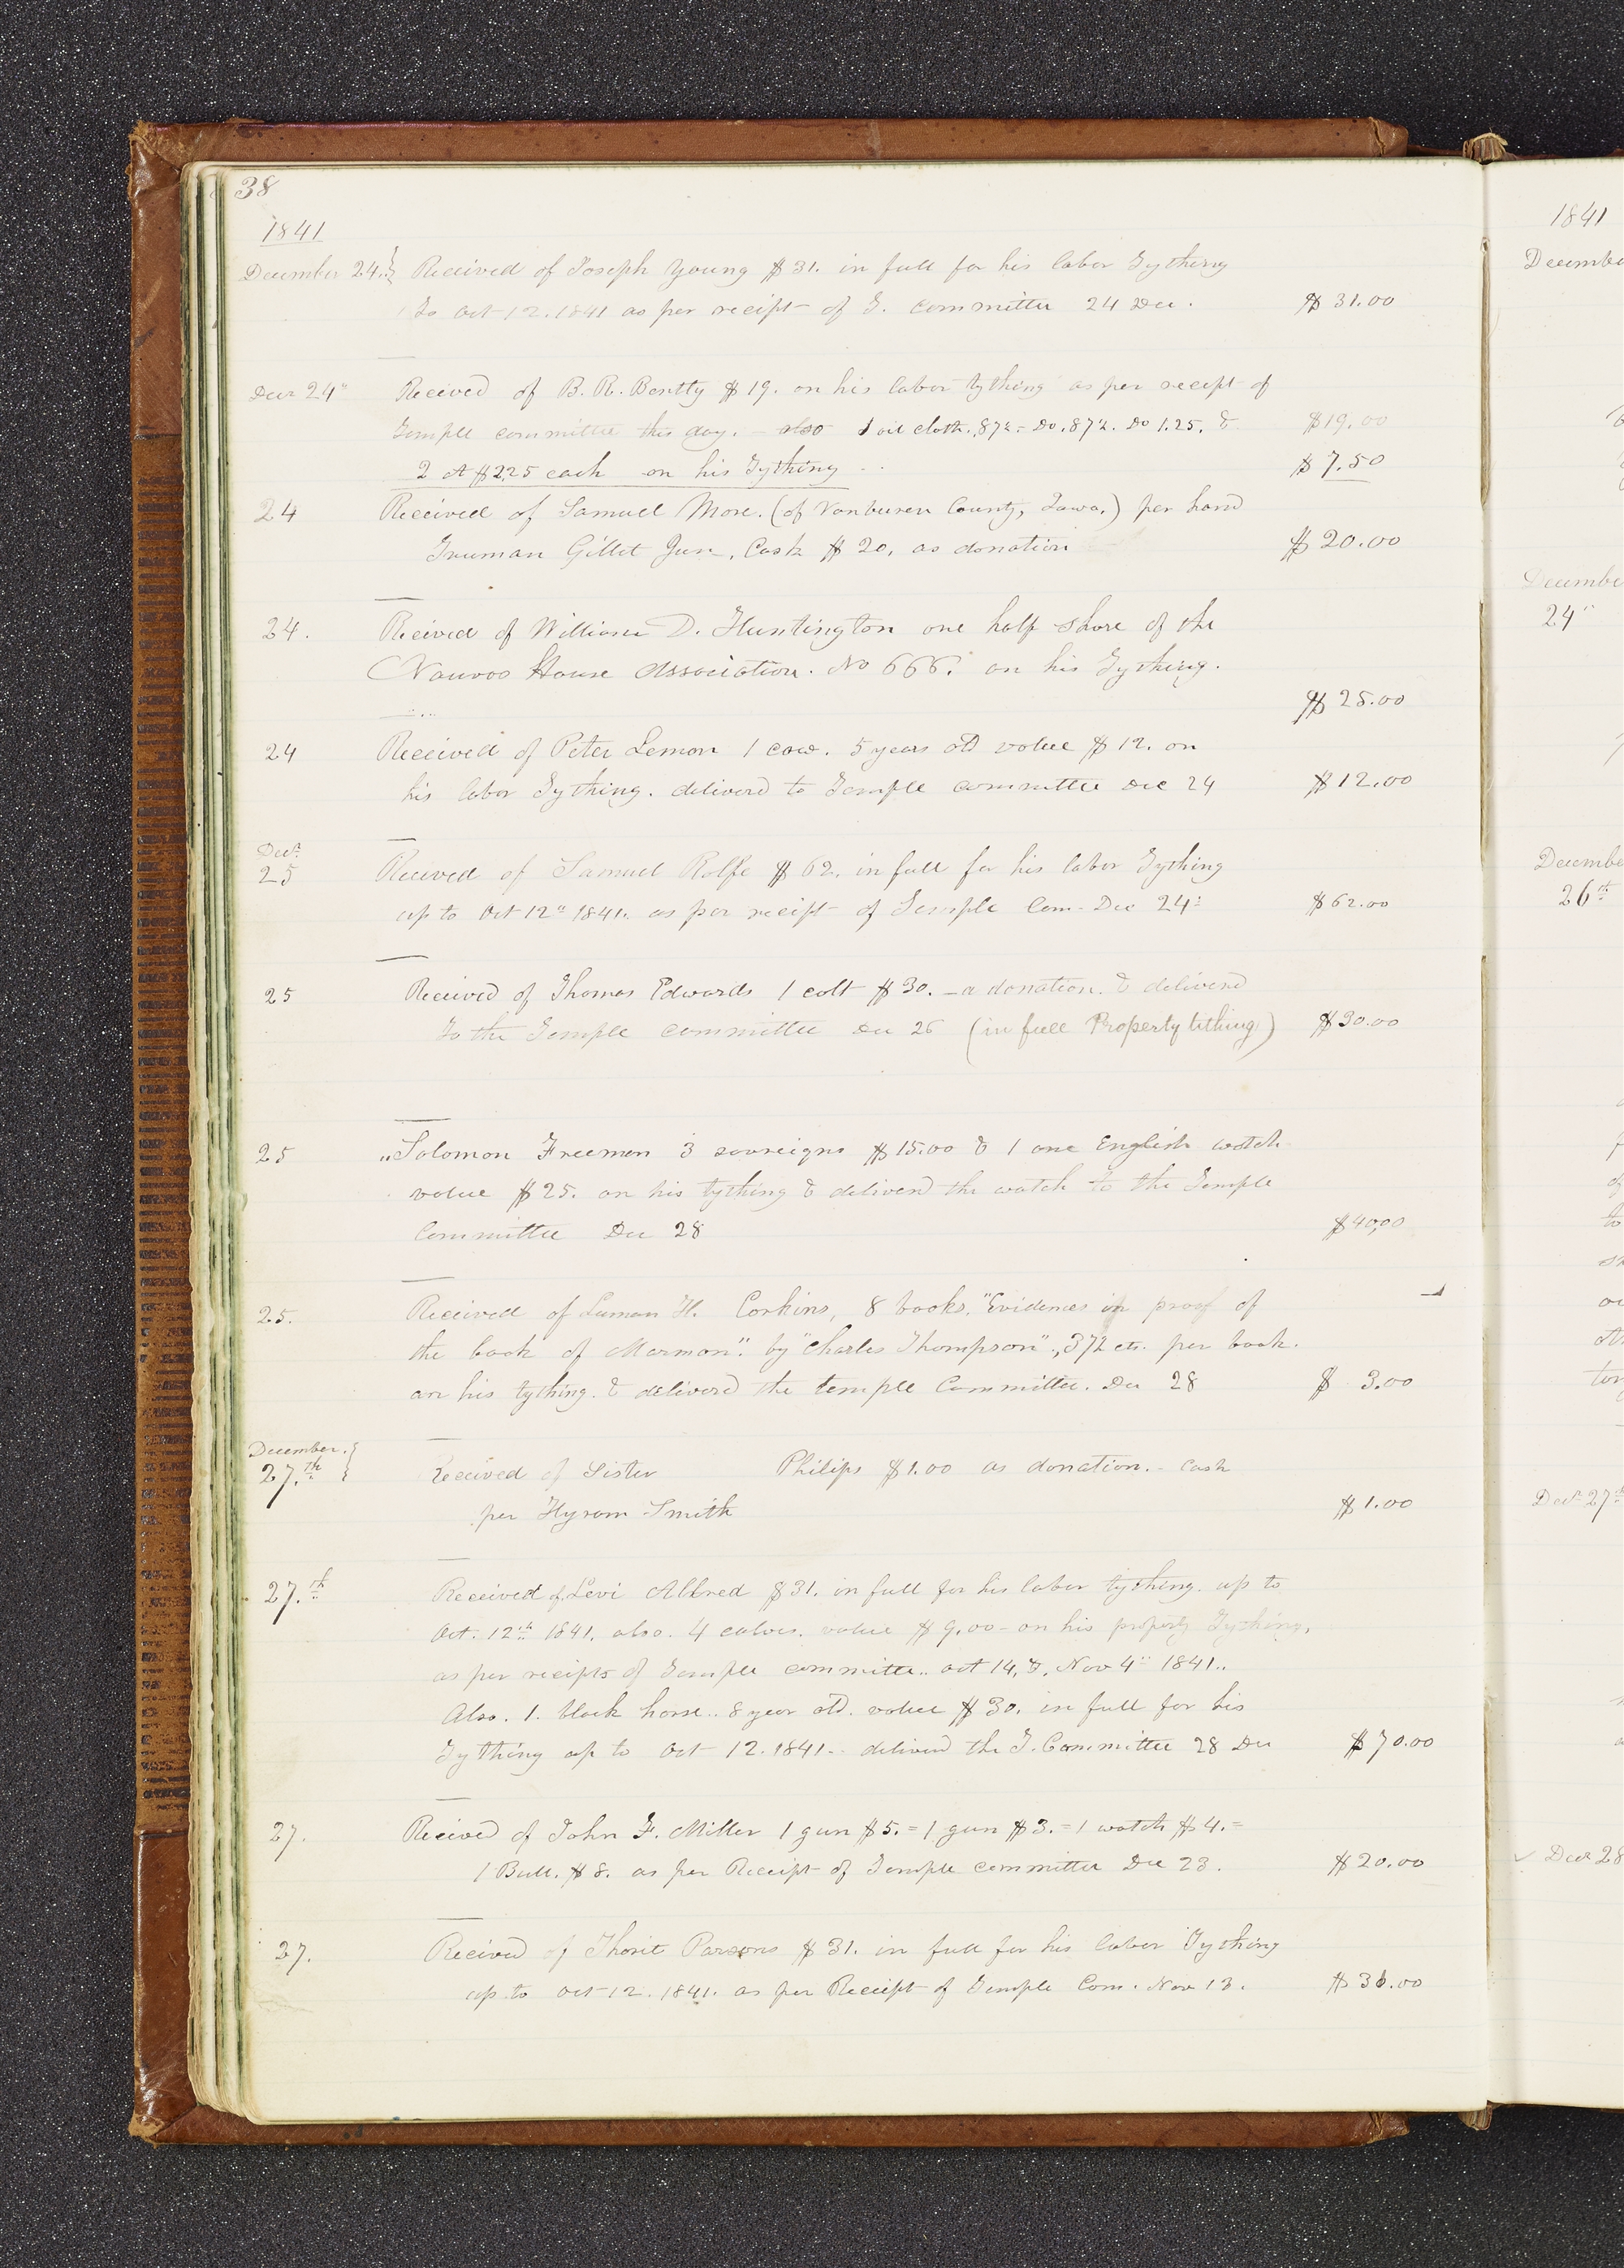 38
1841
December 24. Received of Joseph Young $31. in full for his labor Tything
To Oct 12. 1841 as per receipt of T. committee 24 Dec. $31.00
Decr 24" Received of B. R. Bentty $19. on his labor tything as per receipt of
Temple committee this day. - also 1 oil cloth. ,87½ = Do .87½. Do 1.25. & $19.00
2 at $2,25 each on his Tything $7.50
24 Received of Samuel More. (of Vanburen County, Iowa,) per hand
Truman Gillet Jun, Cash $20. as donation $20.00
24. Received of William D. Huntington one half share of the
Nauvoo House Association. No 666. on his Tything.
$25.00
24 Received of Peter Lemon 1 cow. 5 years old value $12. on
his labor Tything. deliverd to Temple committee Dec 24 $12.00
Decr.
25 Received of Samuel Rolfe $62. in full for his labor Tything
up to Oct 12" 1841. as per receipt of Temple Com- Dec 24: $62.00
25 Received of Thomas Edwards 1 colt $30. - a donation. & deliverd
To the Temple committee Dec 26 (in full Property tithing) $30.00
25 "Solomon Freeman 3 sovreigns $15.00 & 1 one English watch
value $25. on his tything & deliverd the watch to the Temple
Committee Dec 28 $40,00
25. Received of Luman H. Corkins, 8 books. "Evidences in proof of
the book of Mormon". by "Charles Thompson"., 37½ cts. per book.
on his tything. & deliverd the temple Committee. Dec 28 $ 3.00
December.
27.th Received of Sister Philips $1.00 as donation. - Cash
per Hyrom Smith $1.00
27.th Received of Levi Allred $31. in full for his labor tything. up to
Oct. 12th 1841. also. 4 calves. value $9.00 - on his property Tything,
as per receipts of Temple committee.. oct 14, &. Nov 4" 1841..
Also. 1. black horse.. 8 year old. value $30. in full for his
Tything up to Oct 12. 1841.. deliverd the T. Committee 28 Dec $70.00
27. Recived of John F. Miller 1 gun $5. = 1 gun $3. = 1 watch $4. =
1 Bull. $8. as per Receipt of Temple committee Dec 23. $20.00
27. Recived of Thorit Parsons $31. in full for his labor Tything
up to oct 12. 1841. as per Receipt of Temple Com. Nov 13. $31.00
1841
Decembe
Decembe
24"
Decembe
26th
Decr 27th
Decr 28